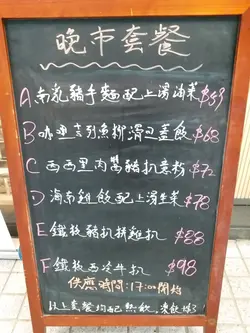 晚市套餐
A 南乳豬手麵配上湯油菜 $59
B 咖喱吉列魚柳滑旦蓋飯 $68
C 西西里肉醬豬扒意粉 $72
D 海南雞飯配上湯生菜 $78
E 鐵板豬扒拼雞扒 $88
F 鐵板西冷牛扒 $98
供應時間：17:00開始
以上套餐均配熱飲，凍飲+3